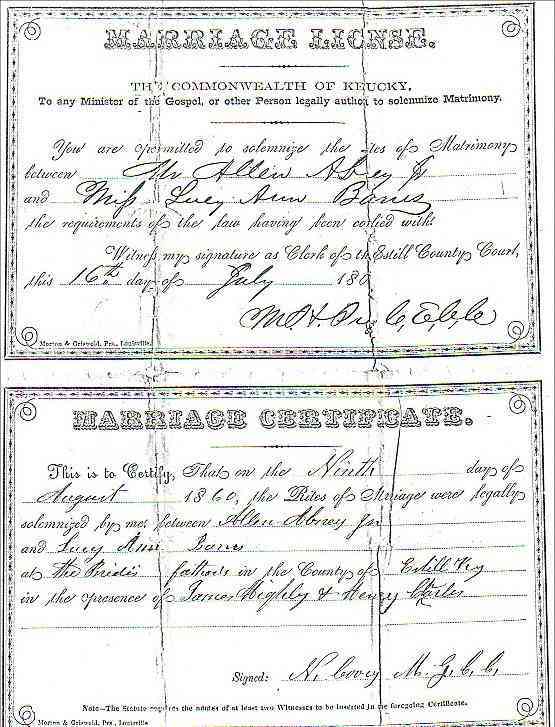 MARRIAGE LICNSE.
THE COMMONWEALTH OF KEUCKY,
To any Minister of the Gospel, or other Person legally authod to solemnize Matrimony.
You are permitted to solemnize the tes of Matrimony
between Mr Allen Abney Jr
and Miss Lucy Ann Barns
the requirements of the law having been coplied with:
Witness my signature as Clerk of th Estill County Court,
this 16th day of July 186
M. H.
Morton & Griswold, Prs., Louisville.
MARRIAGE CERTIFICATE.
This is to Certify, That on the Ninth day of
August 1860, the Rites of Mriage were legally
solemnized by me, between Allen Abney Jr
and Lucy Ann Barns
at the Brides fathers in the County of Estill Ky
in the presence of James & Henry
Signed: N.
Note—The Statute requires the names of at least two Witnesses to be inserted in the foregoing Certificate.
Morton & Griswold, Prs., Louisville